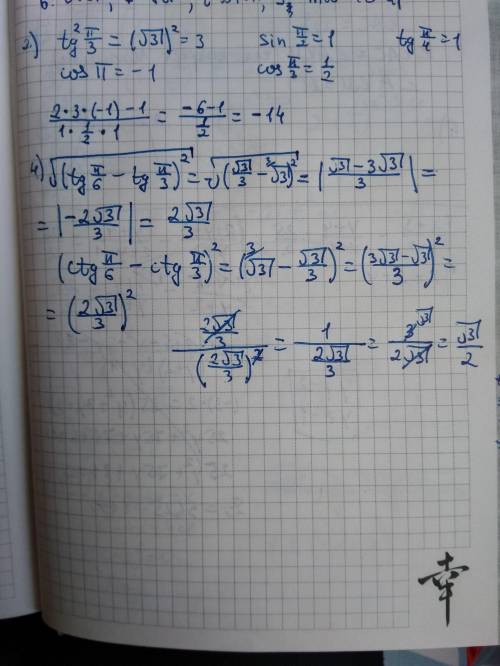 2.) tg² π/3 = (√3)² = 3 sin π/2 = 1 tg π/4 = 1
cos π = -1 cos π/3 = 1/2
(2·3·(-1)-1)/(1·1/2·1) = (-6-1)/(1/2) = -14
4) √(tg π/6 - tg π/3)² = √(√3/3 - ³√3)² = |(√3-3√3)/3| =
= |-2√3/3| = 2√3/3
(ctg π/6 - ctg π/3)² = (³√3 - √3/3)² = ((3√3-√3)/3)² =
= (2√3/3)²
(2√3/3)/(2√3/3)² = 1/(2√3/3) = 3 √3/(2√3) = √3/2
幸